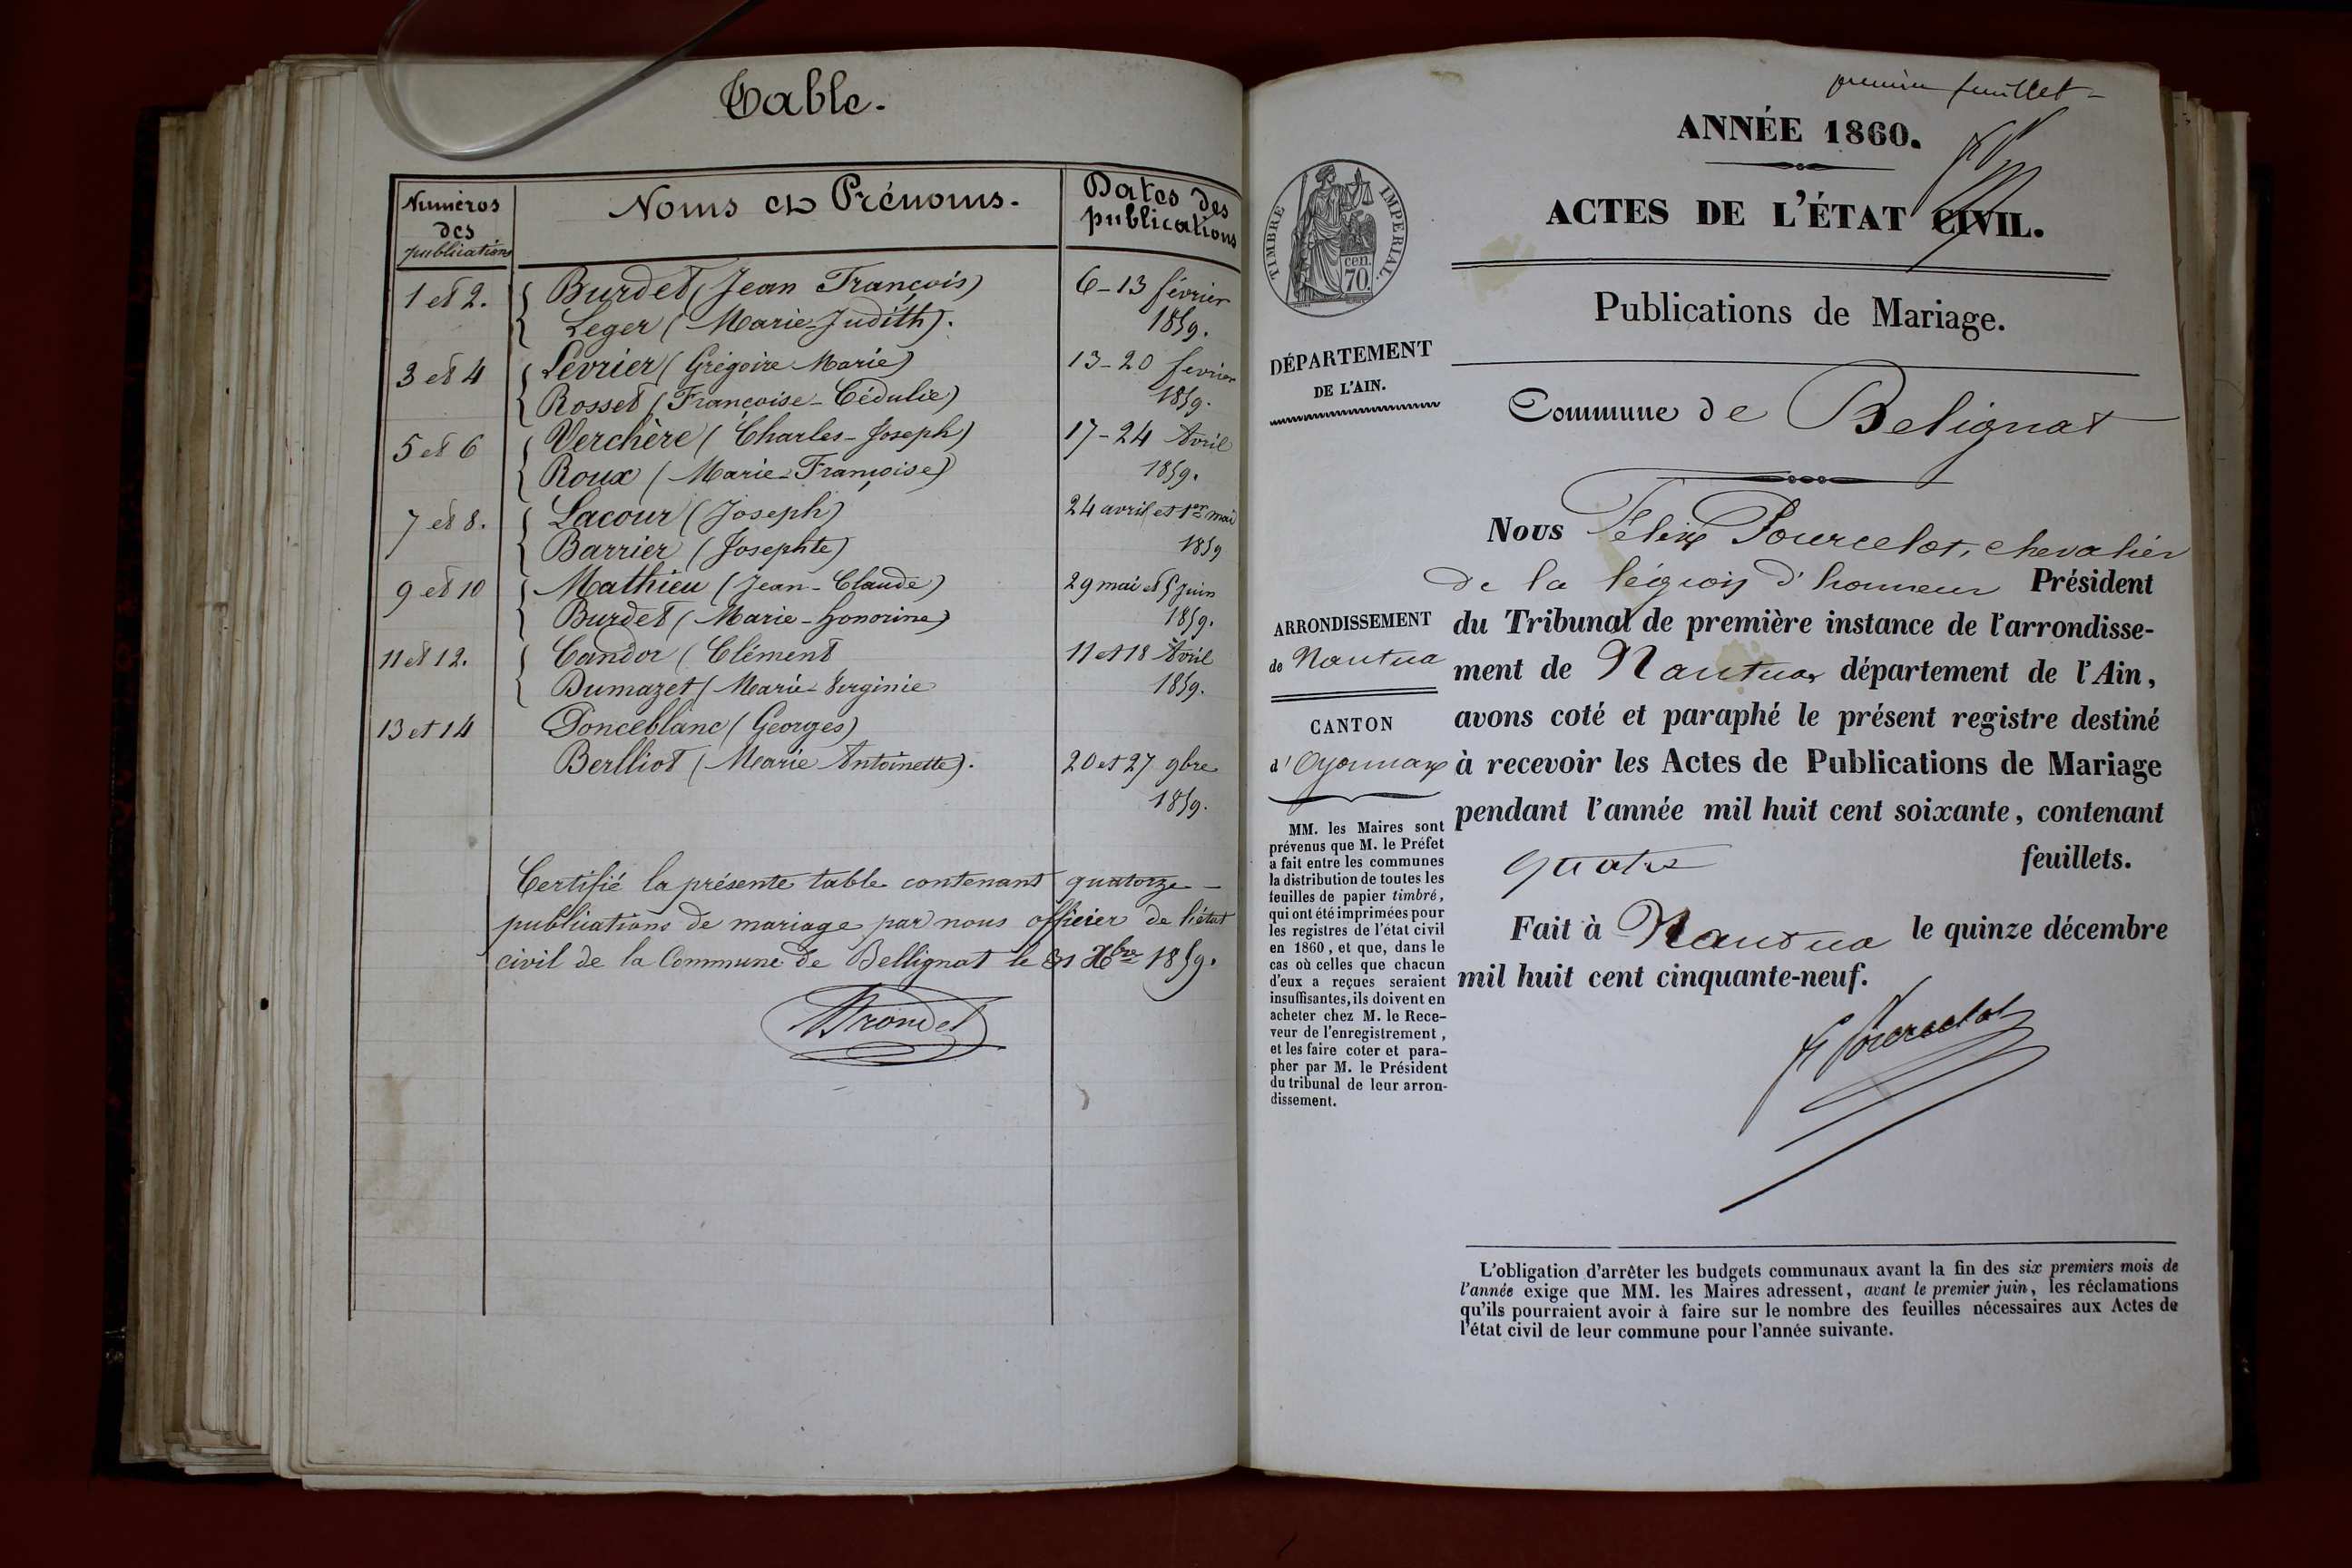 Table.
Numéros des publications
Noms et Prénoms.
Dates des publications
1 et 2.
Burdet (Jean François)
6-13 février
Leger (Marie-Judith).
1859.
3 et 4
Levrier (Grégoire Marie)
13-20 fevrier
Rosset (Françoise-Cédulie)
1859.
5 et 6
Verchère (Charles-Joseph)
17-24 Avril
Roux (Marie-Françoise)
1859.
7 et 8.
Lacour (Joseph)
24 avril et 1er mai
Barrier (Josephte)
1859
9 et 10
Mathieu (Jean-Claude)
29 mai et 5 juin
Burdet (Marie-honorine)
1859.
11 et 12.
Candor (Clément
11 et 18 Avril
Dumazet (Marie-Verginie
1859.
13 et 14
Ponceblanc (Georges)
Berlliot (Marie Antoinette).
20 et 27 9bre
1859.
Certifié la présente table contenant quatorze -
publications de mariage par nous officier de l'état
civil de la Commune de Bellignat le 31 Xbre 1859.
premier feuillet-
ANNÉE 1860.
ACTES DE L'ÉTAT CIVIL.
TIMBRE IMPERIAL.
cen.
70.
Publications de Mariage.
DÉPARTEMENT
DE L'AIN.
Commune de Belignat
Nous Félix Pourcelot, chevalier
de la légion d'honneur Président
ARRONDISSEMENT
de Nantua
du Tribunal de première instance de l'arrondisse-
ment de Nantua département de l'Ain,
CANTON
d'Oyonnax
avons coté et paraphé le présent registre destiné
à recevoir les Actes de Publications de Mariage
pendant l'année mil huit cent soixante, contenant
quatre feuillets.
Fait à Nantua le quinze décembre
mil huit cent cinquante-neuf.
F Pourcelot
MM. les Maires sont
prévenus que M. le Préfet
a fait entre les communes
la distribution de toutes les
feuilles de papier timbré,
qui ont été imprimées pour
les registres de l'état civil
en 1860, et que, dans le
cas où celles que chacun
d'eux a reçues seraient
insuffisantes, ils doivent en
acheter chez M. le Rece-
veur de l'enregistrement,
et les faire coter et para-
pher par M. le Président
du tribunal de leur arron-
dissement.
L'obligation d'arrêter les budgets communaux avant la fin des six premiers mois de
l'année exige que MM. les Maires adressent, avant le premier juin, les réclamations
qu'ils pourraient avoir à faire sur le nombre des feuilles nécessaires aux Actes de
l'état civil de leur commune pour l'année suivante.